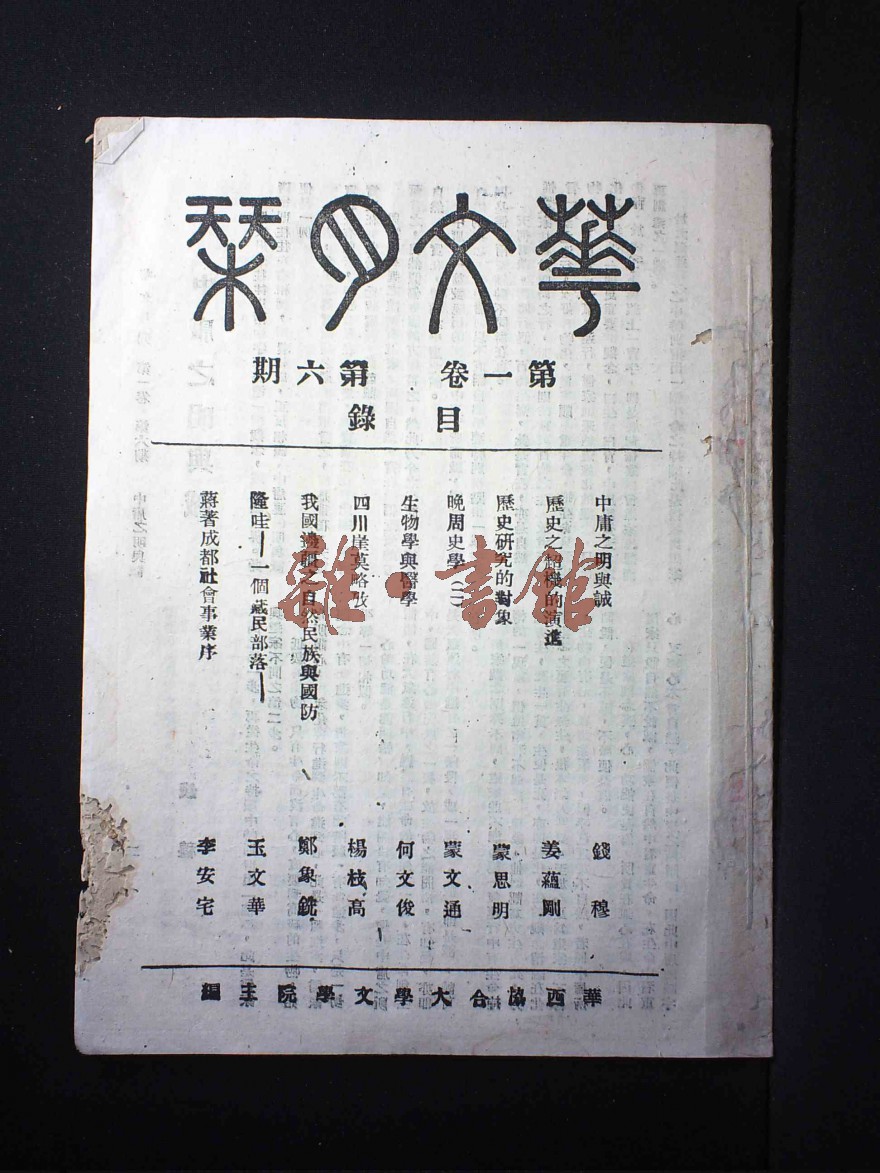 華文月栞
第一卷 第六期
目錄
中庸之明與誠 錢穆
歷史之機的演進 姜蘊剛
歷史研究的對象 蒙思明
晚周史學(二) 蒙文通
生物學與醫學 何文俊
四川崖墓略攷 楊枝高
我國邊疆之自然民族與國防 鄭象銑
隆哇—一個藏民部落— 玉文華
蔣著成都社會事業序 李安宅
華西協合大學文學院主編
雜·書館